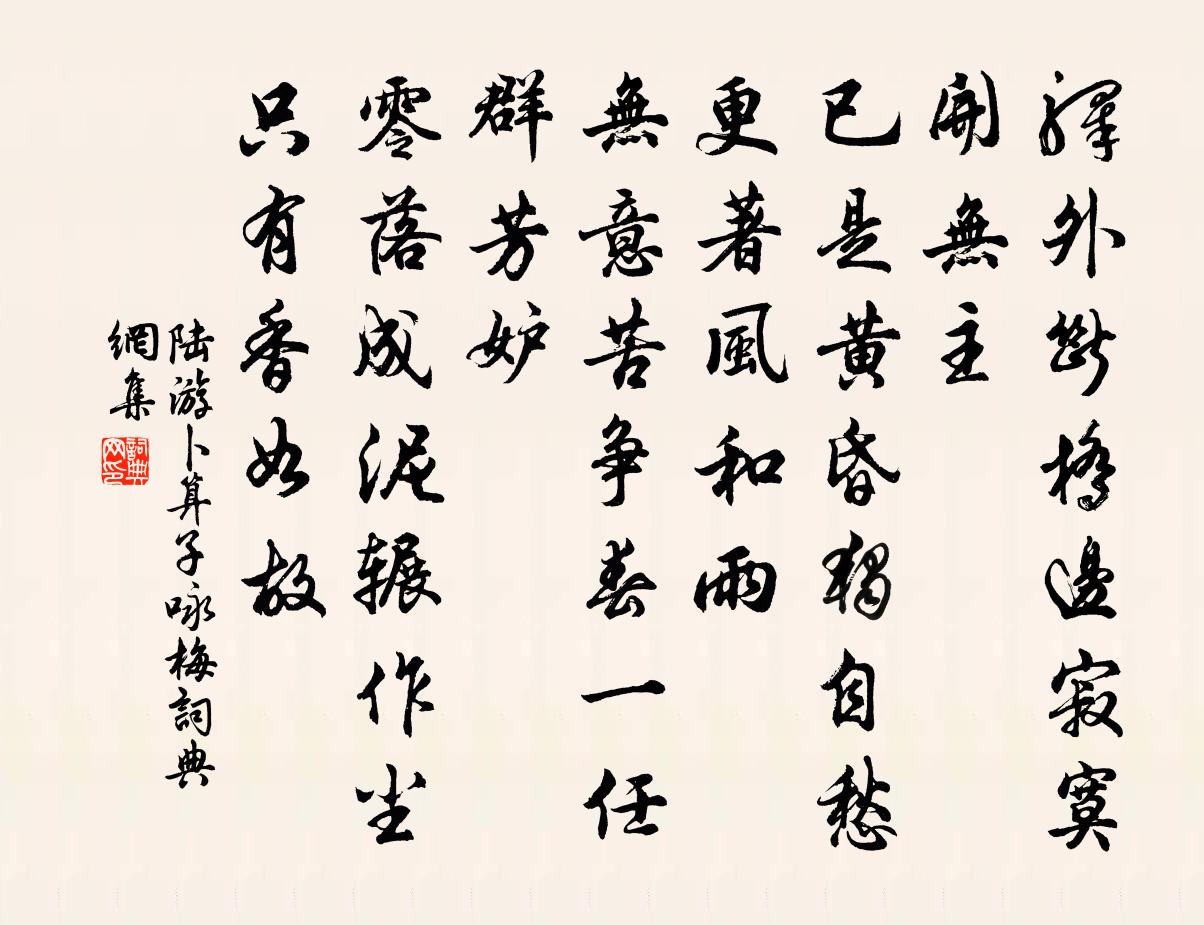 驛外斷橋邊寂寞
開無主
已是黃昏獨自愁
更著風和雨
無意苦争春一任
群芳妒
零落成泥辗作尘
只有香如故
陆游卜算子咏梅詞典
網集
詞典网印